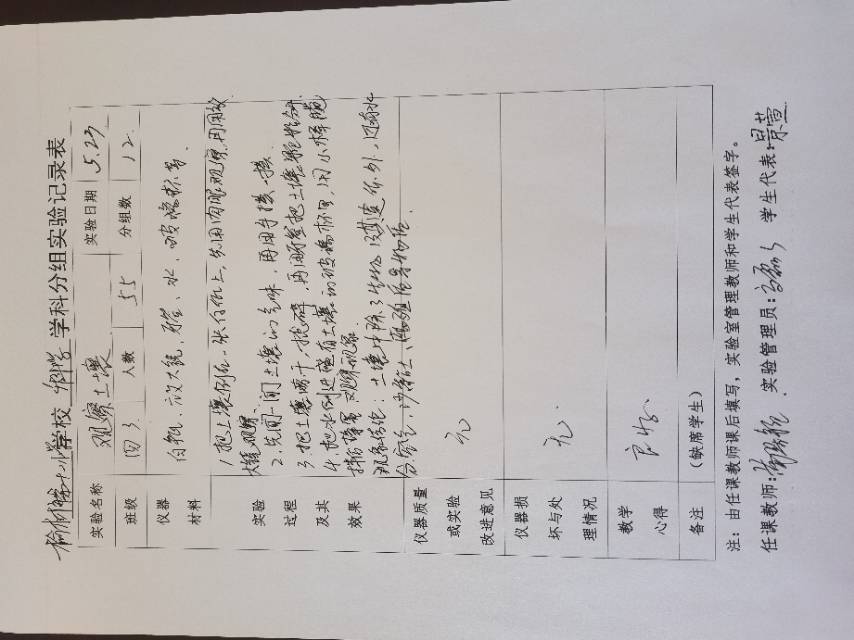 榆林第十小学校 科学 学科分组实验记录表
实验名称 观察土壤 实验日期 5.23
班级 四3 人数 55 分组数 12
仪器材料 白纸、放大镜、水、玻璃杯等
实验过程及其效果
1.把土壤倒在一张白纸上,先用肉眼观察,再用放
大镜观察
2.先闻一闻土壤的气味,再用手摸一摸
3.把土壤晒干、捣碎,再用把土壤
4.把水倒进盛有土壤的玻璃杯里,用小棒搅
拌后静置,观察现象
观察结论:土壤中除了动物、植物外,还有水
分、空气、沙、黏土、腐殖质等物质
仪器质量或实验改进意见 无
仪器损坏与处理情况 无
教学心得 良好
备注 (缺席学生)
注:由任课教师课后填写,实验室管理教师和学生代表签字。
任课教师: 实验管理员: 学生代表:景萱